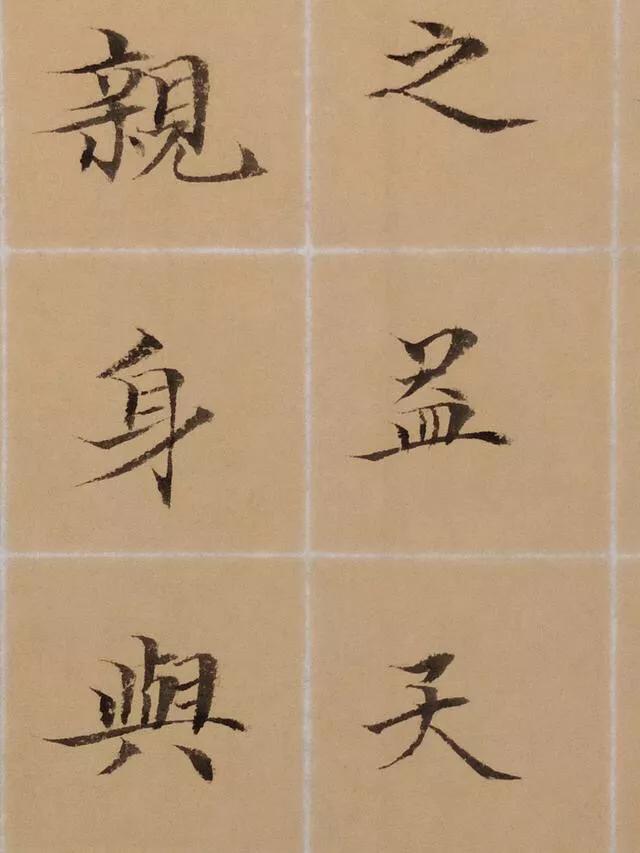 之益天
親身與